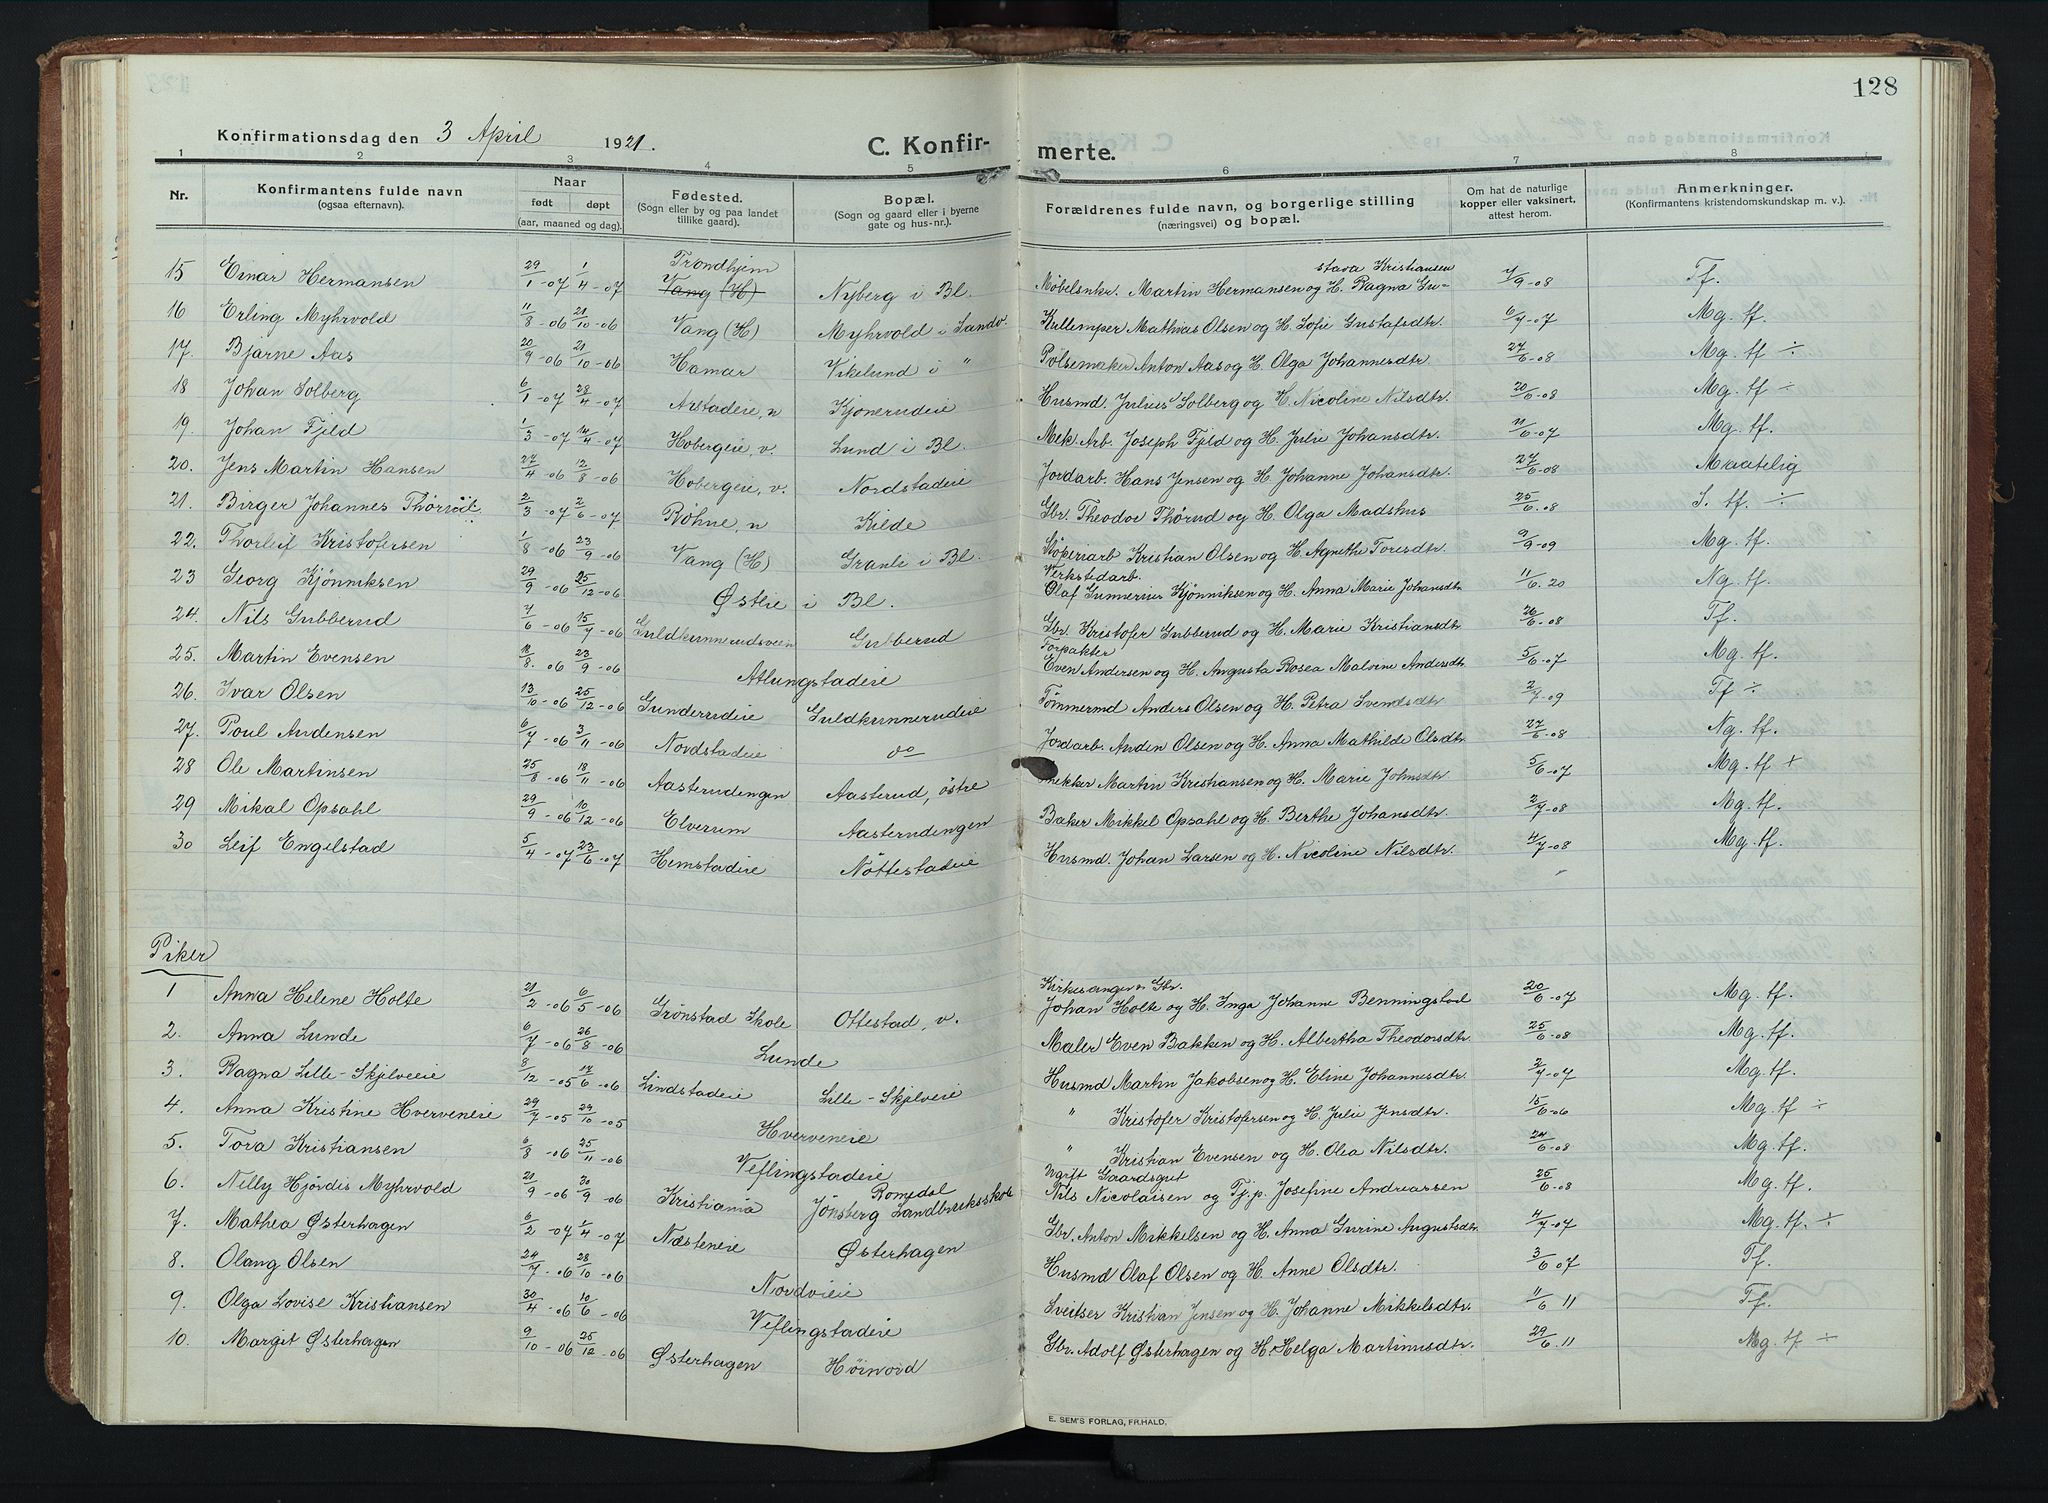 128
Konfirmationsdag den 3 April 1921.
C. Konfirmerte.
1 2 3 4 5 6 7 8
Nr. Konfirmantens fulde navn (ogsaa efternavn). Naar født døpt (aar, maaned og dag). Fødested. (Sogn eller by og paa landet tillike gaard). Bopæl. (Sogn og gaard eller i byerne gate og hus-nr.). Forældrenes fulde navn, og borgerlige stilling (næringsvei) og bopæl. Om hat de naturlige kopper eller vaksinert, attest herom. Anmerkninger. (Konfirmantens kristendomskundskap m. v.).
15 Einar Hermansen 29/1-07 1/4-07 Trondhjem Vang (H) Nyberg i Bl. Møbelsnkr. Martin Hermansen og H. Ragna Gustava Kristiansen 7/9-08 Tf.
16 Erling Myhrvold 11/8-06 21/10-06 Vang (H) Myhrvold i Sandv. Kullemper Mathias Olsen og H. Sofie Gustafsdtr. 6/7-07 Mg. tf.
17. Bjarne Aas 20/9-06 21/10-06 Hamar Vikelund i " Pølsemaker Anton Aas og H. Olga Johannesdtr. 27/6-08 Mg. tf ÷
18 Johan Solberg 6/1-07 28/4-07 Arstadeie, n Kjonerudeie Husmd. Julius Solberg og H. Nicoline Nilsdtr. 20/6-08 Mg. tf ÷
19. Johan Fjeld 1/3-07 14/4-07 Hobergeie, v. Lund i Bl. Mek. Arb. Joseph Fjeld og H. Julie Johansdtr. 11/6-07 Mg. tf.
20. Jens Martin Hansen 27/4-06 12/8-06 Hobergeie, v. Nordstadeie Jordarb. Hans Jensen og H. Johanne Johansdtr. 27/6-08 Maatelig
21. Birger Johannes 2/3-07 2/6-07 Røhne, n Kilde Gbr. Theodor Thørud og H. Olga Madshus 25/6-08 S. tf. ÷
22. Thorleif Kristofersen 1/8-06 23/9-06 Vang (H) Granli i Bl. Støperiarb Kristian Olsen og H. Agnethe Toresdtr. 9/9-09 Mg. tf.
23 Georg Kjønniksen 29/9-06 25/12-06 Østlie i Bl. Verkstedarb. Olaf Gunnerius Kjønniksen og H. Anna Marie Johansdtr 11/6-20 Ng. tf.
24. Nils Gubberud 7/6-06 15/7-06 Guldkunnerudsveen Gubberud Gbr. Kristofer Gubberud og H. Marie Kristiansdtr 26/6-08 Tf.
25. Martin Evensen 18/8-06 23/9-06 Atlungstadeie Forpakter Even Andersen og H. Augusta Rosea Malvine Andersdtr 5/6-07 Mg. tf.
26. Ivar Olsen 13/10-06 25/12-06 Gunderudeie Guldkunnerudeie Tømmermd Anders Olsen og H. Petra Svendsdtr. 2/7-09 Tf ÷
27. Poul Andensen 6/7-06 3/11-06 Nordstadeie do Jordarb. Anden Olsen og H. Anna Mathilde Olsdtr. 27/6-08 Ng. tf.
28 Ole Martinsen 25/8-06 18/11-06 Aasterudengen Aasterud, østre Martin Kristiansen og H. Marie Johnsdtr. 5/6-07 Mg. tf +
29 Mikal Opsahl 29/9-06 10/12-06 Elverum Aasterudengen Baker Mikkel Opsahl og H. Berthe Johansdtr. 2/7-08 Mg. tf.
30 Leif Engelstad 5/4-07 23/6-07 Hemstadeie Nøttestadeie Husmd. Johan Larsen og H. Nicoline Nilsdtr. 4/7-08 Mg. tf.
Piker
1 Anna Helene Holte 21/2-06 6/5-06 Grønstad Skole Ottestad, v. Kirkesanger og Gbr. Johan Holte og H. Inga Johanne Benningstad 20/6-07 Mg. tf.
2. Anna Lunde 6/7-06 26/8-06 Lunde Maler Even Bakken og H. Albertha Theodorsdtr. 25/6-08 Mg. tf.
3. Ragna Lille-Skjelveeie 8/12-05 17/6-06 Lindstadeie Lille-Skjelveie Husmd Martin Jakobsen og H. Eline Johannesdtr. 2/7-07 Mg. tf.
4. Anna Kristine Hverveneie 29/7-05 29/10-05 Hverveneie " Kristofer Kristofersen og H. Julie Jensdtr. 15/6-06 Mg. tf ÷
5. Tora Kristiansen 6/8-06 25/11-06 Veflingstadeie " Kristian Evensen og H. Olea Nilsdtr. 24/6-08 Mg. tf.
6. Nelly Hjørdis Myhrvold 21/9-06 30/9-06 Kristiania Romedal Jønsberg Landbruksskole Ugift Gaardsgut Nils Nicolaisen og Tj.p. Josefine Andreassen 25/6-08 Mg. tf.
7. Mathea Østerhagen 6/2-07 1/4-07 Næsteneie Østerhagen Gbr. Anton Mikkelsen og H. Anna Gurine Augustsdtr 4/7-07 Mg. tf. ÷
8. Olaug Olsen 24/7-06 28/10-06 Nordvieie Husmd Olaf Olsen og H. Anne Olsdtr. 3/6-07 Tf.
9. Olga Lovise Kristiansen 30/4-06 10/6-06 Veflingstadeie Sveitser Kristian Jensen og H. Johanne Mikkelsdtr. 11/6 11 Tf.
10. Margit Østerhagen 9/10-06 25/12-06 Østerhagen Høinord Gbr. Adolf Østerhagen og H. Helga Martinusdtr. 29/6.11 Mg. tf ÷
E. SEM'S FORLAG, FR.HALD.